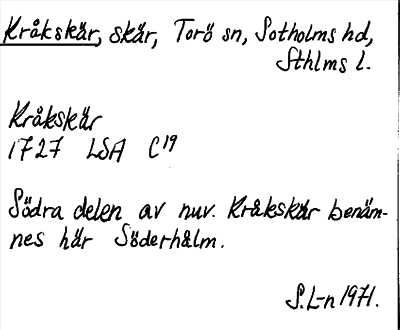 Kråkskär, skär, Torö sn, Sotholms hd,
Sthlms l.
Kråkskär
1727 LSA C19
Södra delen av nuv. Kråkskär benäm-
nes här Söderhålm.
S.L-n 1971.